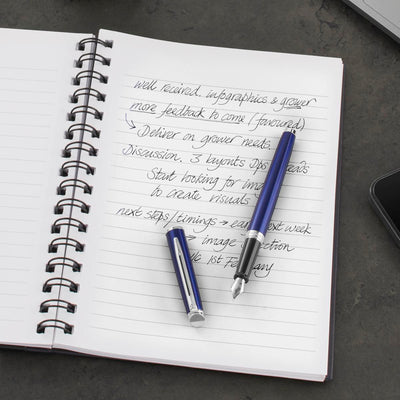 well received, infographics & grower
more feedback to come (favoured)
↳ Deliver on grower needs.
Discussion. 3 layouts
Start looking for
to create visuals
next steps/timings → next week
→ image
1st